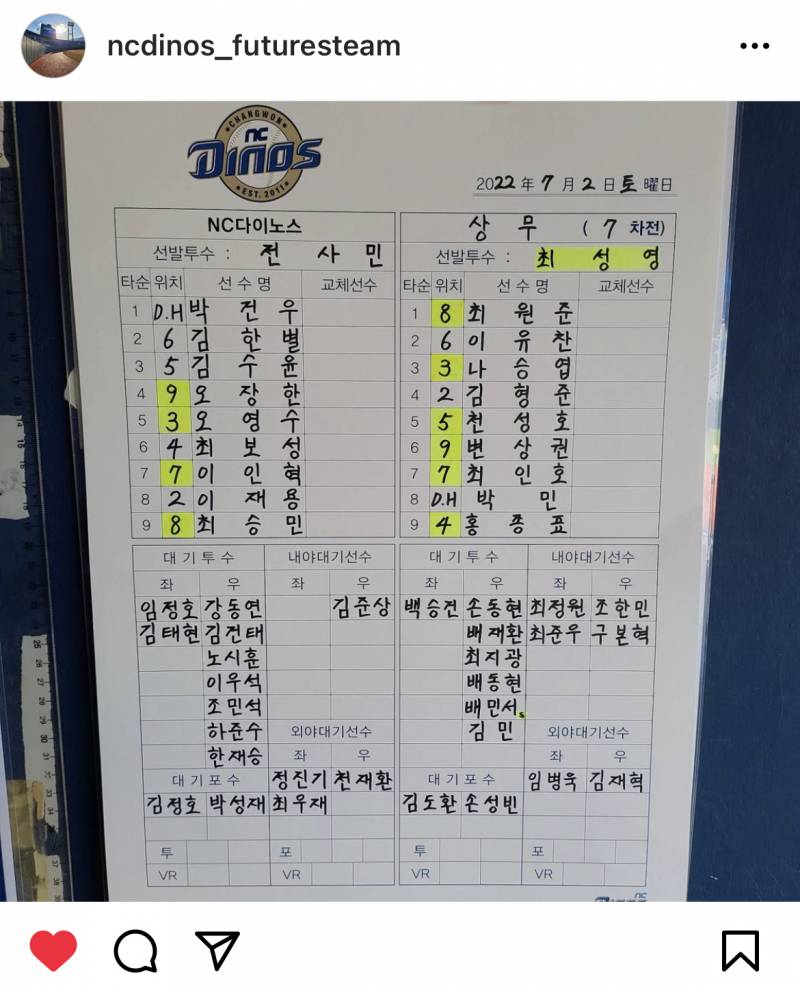 ncdinos_futuresteam
CHANGWON
nc
DINOS
EST. 2011
2022 年 7 月 2 日 토 曜日
NC다이노스
선발투수 : 전 사 민
타순 위치 선 수 명 교체선수
1 D.H 박 건 우
2 6 김 한 별
3 5 김 수 윤
4 9 오 장 한
5 3 오 영 수
6 4 최 보 성
7 7 이 인 혁
8 2 이 재 용
9 8 최 승 민
상 무 ( 7 차전)
선발투수 : 최 성 영
타순 위치 선 수 명 교체선수
1 8 최 원 준
2 6 이 유 찬
3 3 나 승 엽
4 2 김 형 준
5 5 천 성 호
6 9 변 상 권
7 7 최 인 호
8 D.H 박 민
9 4 홍 종 표
대 기 투 수 내야대기선수
좌 우 좌 우
임정호 강동연 김준상
김태현 김건태
노시훈
이우석
조민석
하준수 외야대기선수
한재승 좌 우
대 기 포 수 정진기 천재환
김정호 박성재 최우재
투 포
VR VR
대 기 투 수 내야대기선수
좌 우 좌 우
백승건 손동현 최정원 조한민
배재환 최준우 구본혁
최지광
배동현
배민서s
김 민 외야대기선수
좌 우
대 기 포 수 임병욱 김재혁
김도환 손성빈
투 포
VR VR